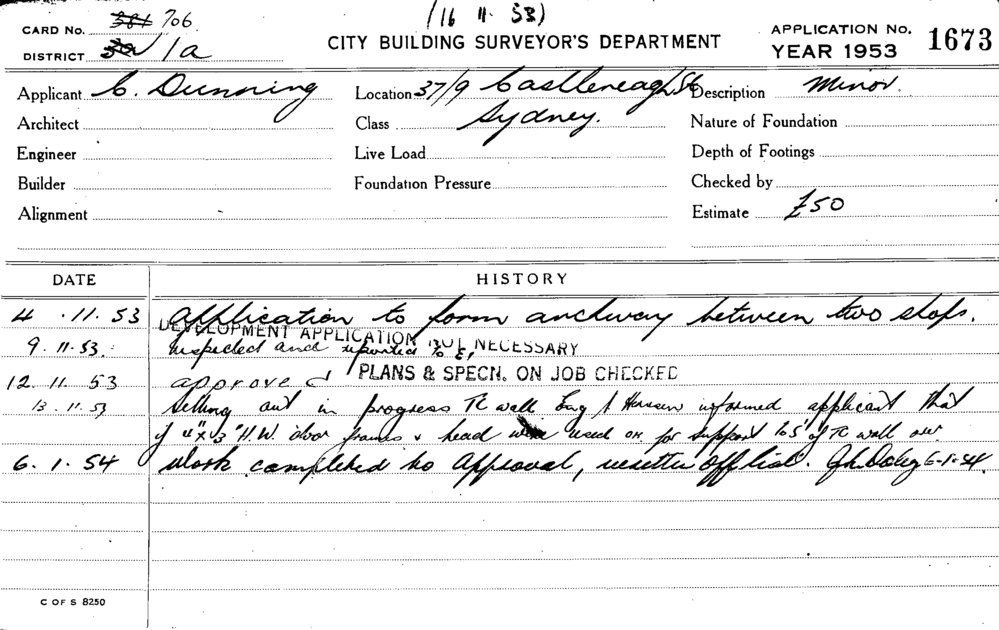 (16 11. 53)
CARD No. 706
DISTRICT 1a
CITY BUILDING SURVEYOR'S DEPARTMENT
APPLICATION No. 1673
YEAR 1953
Applicant C. Dunning
Location 37/9 Castlereagh St
Description Minor.
Architect
Class Sydney.
Nature of Foundation
Engineer
Live Load
Depth of Footings
Builder
Foundation Pressure
Checked by
Alignment
Estimate £50
DATE HISTORY
4 .11. 53 Application to form archway between two shops.
DEVELOPMENT APPLICATION NOT NECESSARY
9. 11. 53. Inspected and reported to E.
12. 11. 53 approved
PLANS & SPECN. ON JOB CHECKED
13. 11. 53 Setting out in progress TC wall informed applicant that
if 4" x 3" H.W. door frames & head were used OK for support to 5' of TC wall over
6. 1. 54 Work completed to Approval, 6-1-54.
C OF S 8250